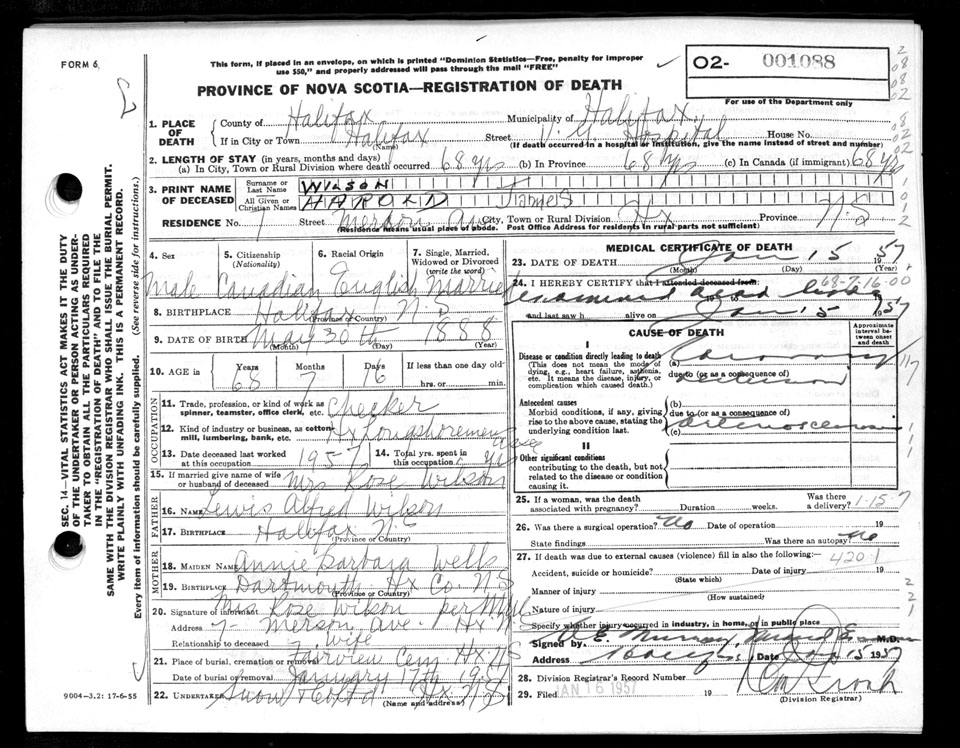 This form, if placed in an envelope, on which is printed "Dominion Statistics—Free, penalty for improper
FORM 6.
use $50," and properly addressed will pass through the mail "FREE"
O2- 001088
PROVINCE OF NOVA SCOTIA—REGISTRATION OF DEATH
For use of the Department only
1. PLACE OF DEATH
County of Halifax Municipality of Halifax
If in City or Town Halifax Street V. G. Hospital House No.
(Name) (If death occurred in a hospital or institution, give the name instead of street and number)
2. LENGTH OF STAY (in years, months and days)
(a) In City, Town or Rural Division where death occurred 68 yrs (b) In Province 68 yrs (c) In Canada (if immigrant) 68 yrs
3. PRINT NAME OF DECEASED
Surname or Last Name WILSON
All Given or Christian Names HAROLD James
RESIDENCE No. 7 Street Ave City, Town or Rural Division Hx Province N.S
(Residence means usual place of abode. Post Office Address for residents in rural parts not sufficient)
4. Sex 5. Citizenship (Nationality) 6. Racial Origin 7. Single, Married, Widowed or Divorced (write the word)
Male Canadian English Married
8. BIRTHPLACE Halifax N.S
(Province or Country)
9. DATE OF BIRTH May 30th 1888
(Month) (Day) (Year)
10. AGE Years Months Days If less than one day old-
68 7 16 hrs. or min.
OCCUPATION
11. Trade, profession, or kind of work as spinner, teamster, office clerk, etc. Checker
12. Kind of industry or business, as cotton-mill, lumbering, bank, etc. Hx Longshoremens
13. Date deceased last worked at this occupation 1957 14. Total yrs. spent in this occupation yrs
15. If married give name of wife or husband of deceased Mrs Rose Wilson
FATHER
16. Name Lewis Alfred Wilson
17. BIRTHPLACE Halifax N.S
(Province or Country)
MOTHER
18. MAIDEN NAME Annie Barbara Wells
19. BIRTHPLACE Dartmouth Hx Co N.S
(Province or Country)
20. Signature of informant Mrs Rose Wilson per
Address 7- Merson Ave. Hx N.S
Relationship to deceased wife
21. Place of burial, cremation or removal Fairview Cem Hx N.S
Date of burial or removal January 17th 1957
22. UNDERTAKER Snow & Co Ltd Hx. N.S
(Name and Address)
MEDICAL CERTIFICATE OF DEATH
23. DATE OF DEATH Jan 15 1957
(Month) (Day) (Year)
24. I HEREBY CERTIFY that I attended deceased from: 68-7-16-00
examined dead body
19 to
and last saw h alive on Jan 15 1957
CAUSE OF DEATH
Approximate interval between onset and death
I
Disease or condition directly leading to death
(This does not mean the mode of dying, e.g., heart failure, asthenia, etc. It means the disease, injury, or complication which caused death.)
(a) Coronary
due to (or as a consequence of)
Antecedent causes
Morbid conditions, if any, giving rise to the above cause, stating the underlying condition last.
(b)
due to (or as a consequence of)
(c) arteriosclerosis
II
Other significant conditions
contributing to the death, but not related to the disease or condition causing it.
25. If a woman, was the death associated with pregnancy? Duration weeks. Was there a delivery? 1-15-7
26. Was there a surgical operation? No Date of operation 19
State findings Was there an autopsy? No
27. If death was due to external causes (violence) fill in also the following:— 420.1
Accident, suicide or homicide? Date of injury 19
(State which)
Manner of injury
(How sustained)
Nature of injury
Specify whether injury occurred in industry, in home, or in public place
Signed by A. E. Murray M.D.
Address Date Jan 15 1957
28. Division Registrar's Record Number
29. Filed JAN 16 1957 19
(Division Registrar)
SEC. 14—VITAL STATISTICS ACT MAKES IT THE DUTY
OF THE UNDERTAKER OR PERSON ACTING AS UNDER-
TAKER TO OBTAIN ALL THE PARTICULARS REQUIRED
IN THE "REGISTRATION OF DEATH" AND TO FILE THE
SAME WITH THE DIVISION REGISTRAR WHO SHALL ISSUE THE BURIAL PERMIT.
WRITE PLAINLY WITH UNFADING INK. THIS IS A PERMANENT RECORD.
Every item of information should be carefully supplied. (See reverse side for instructions.)
9004—3.2: 17-6-55